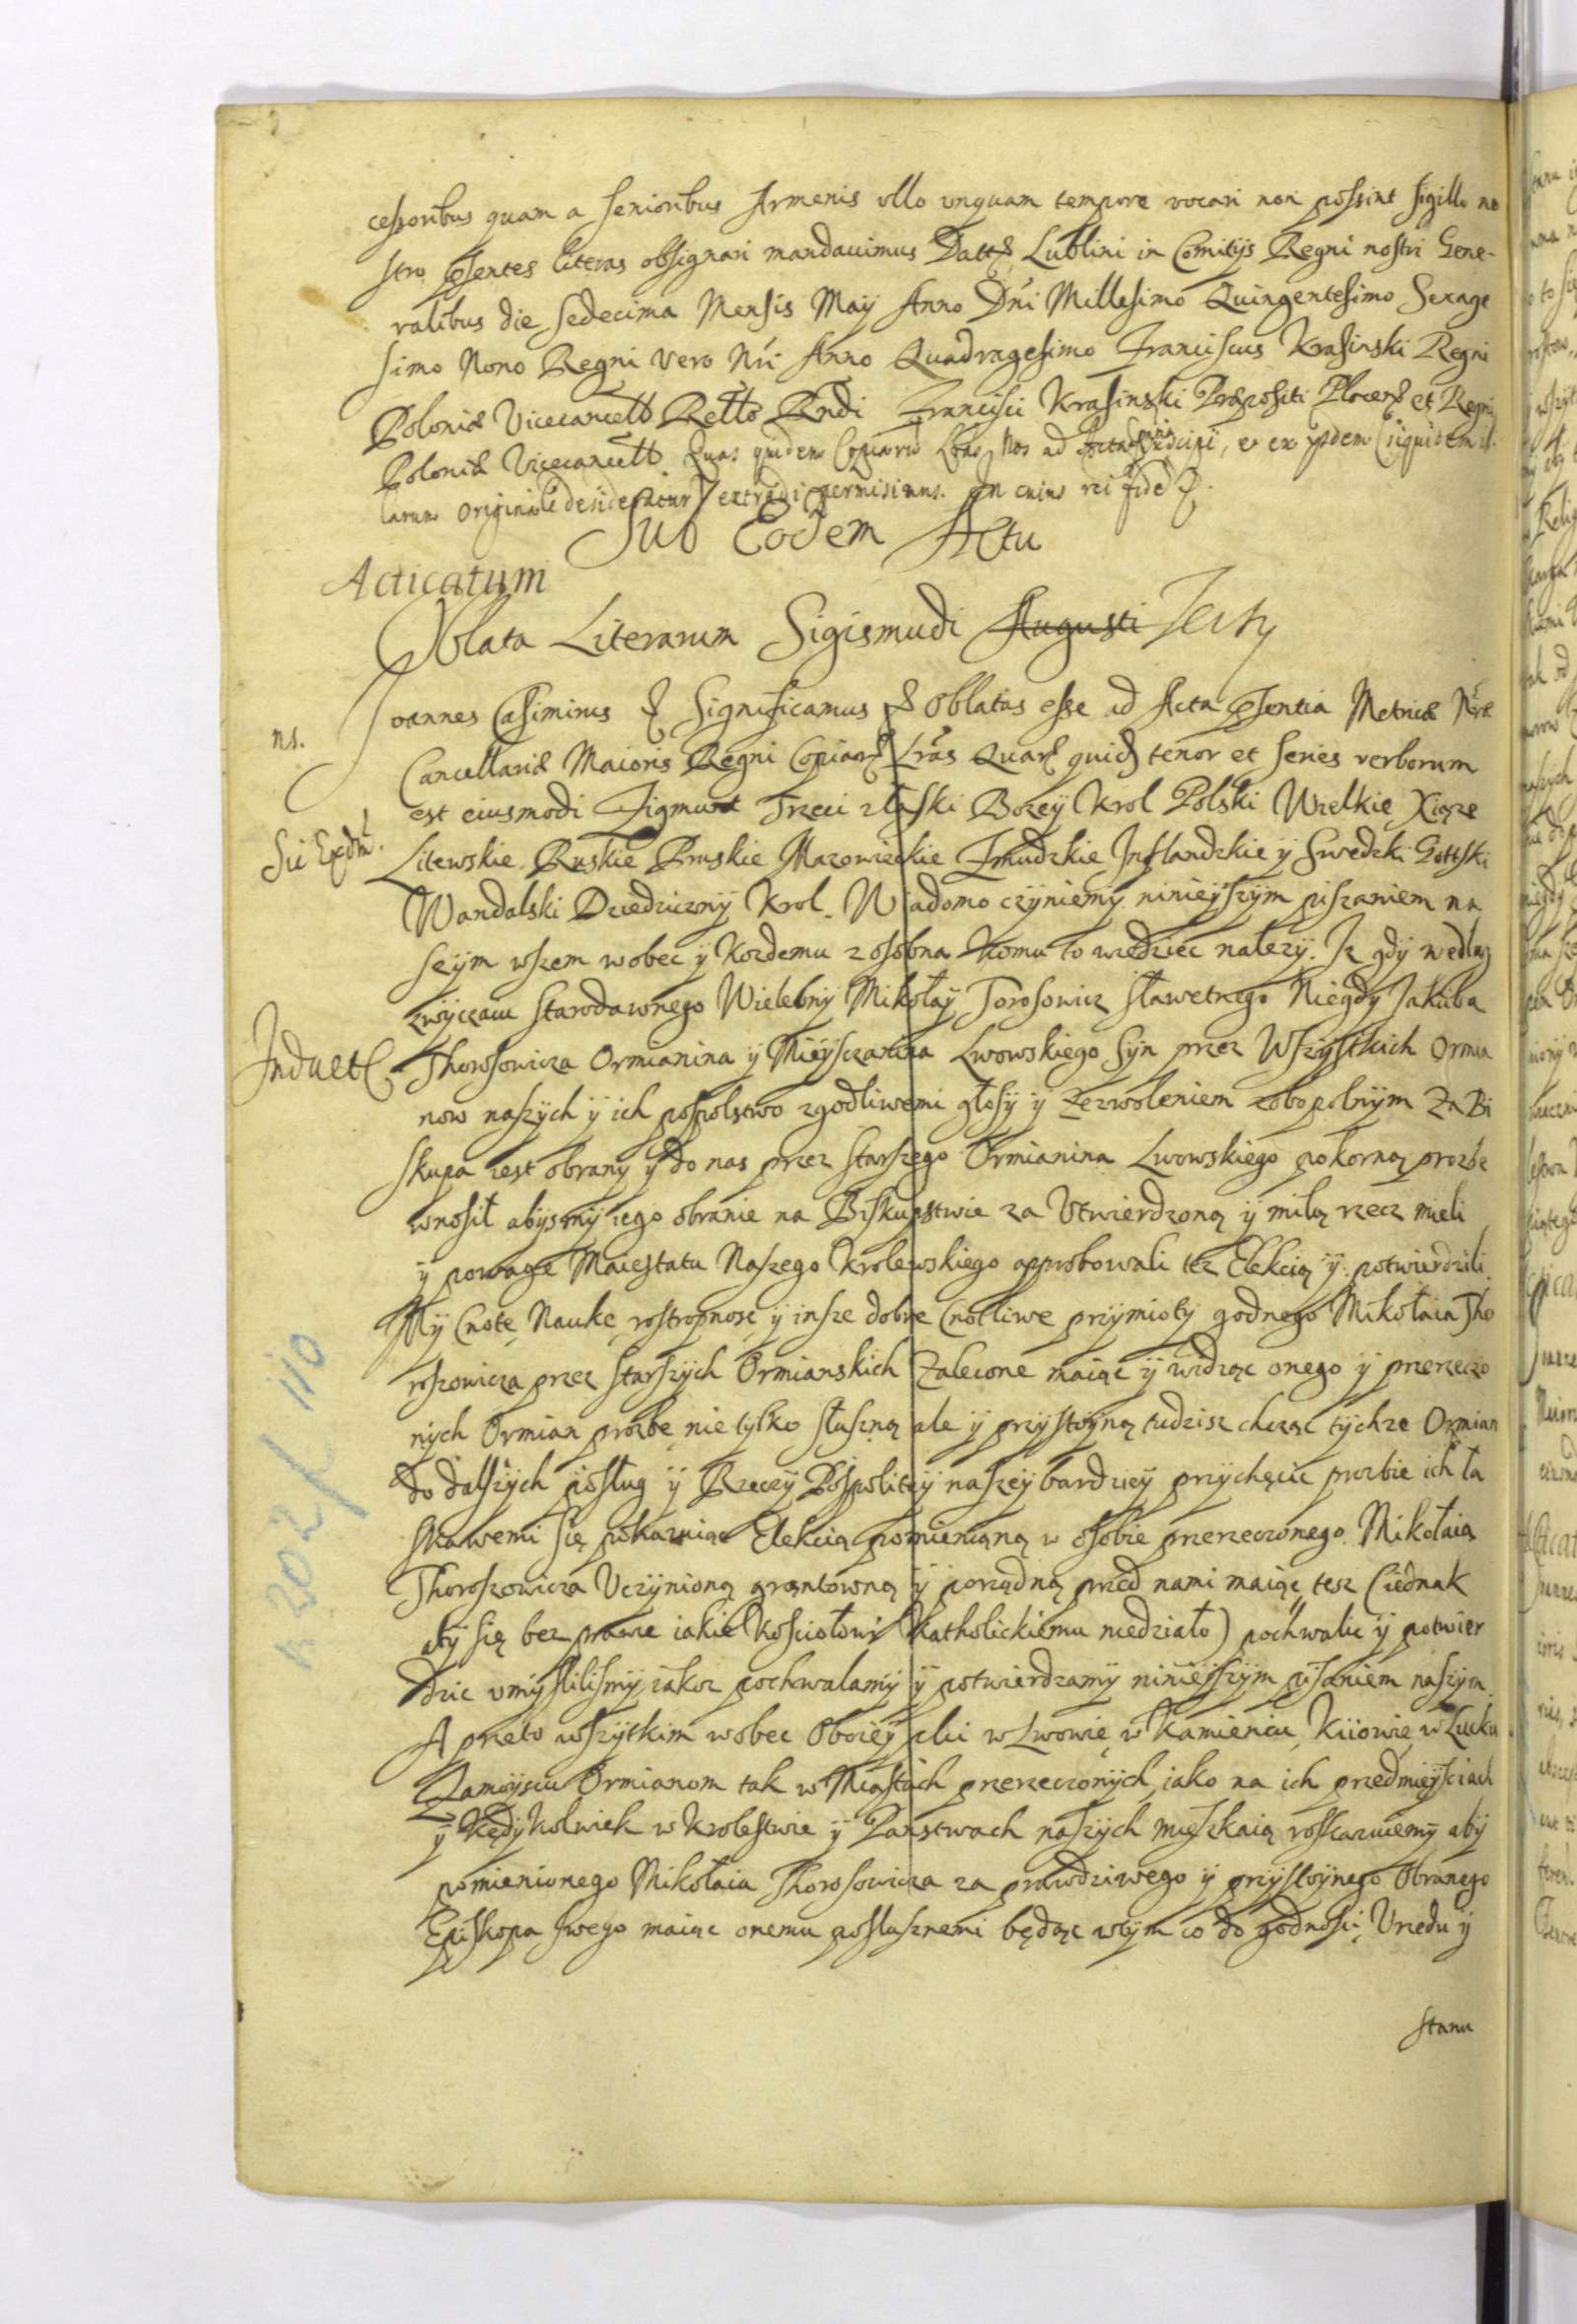 cessoribus quam a Senioribus Armenis ullo vnquam tempore vocari non possint sigillo no
stro pntes literas obsignari mandauimus Datt Lublini in Comitijs Regni nostri Gene-
ralibus die sedecima Mensis Maij Anno Dni Millesimo Quingentesimo Sexage
simo Nono Regni vero Nri Anno Quadragesimo Franciscus Krasinski Regni
Poloniæ Vicecancell Relto Rndi Francisci Krasinski Præpositi Plocen et Regni
Poloniæ Vicecancell Quas quidem Copiaru Lras Nos ad Acta suscipi, et ex ijsdem (siquidem il-
larum originale desideratur) extradi permisimus. In cuius rei fide
Sub Eodem Actu
Acticatum
Oblata Literarum Sigismudi Augusti Tertij
ns.
Joannes Casimirus & Significamus & Oblatas esse ad Acta pntia Metricæ Nræ
Cancellariæ Maioris Regni Copiar Lras Quar quid tenor et series verborum
est eiusmodi Zigmunt Trzeci z łaski Bozey Krol Polski Wielkie Xiąze
Sic Expdm.
Litewskie Ruskie Pruskie Mazowieckie Zmudzkie Inflandzkie ÿ Swedzki Gottski
Wandalski Dziedziczny Krol. Wiadomo czÿniemy ninieÿszÿm piszaniem na
szÿm wszem wobec ÿ Kozdemu z osobna Komu to wiedziec nalezÿ. Iz gdÿ wedlug
zwÿczaiu starodawnego Wielebnÿ Mikołaÿ Torosowicz sławetnego Niegdÿ Jakuba
Induct
Thorosowicza Ormianina ÿ Mieÿsczanina Lwowskiego Sÿn przez Wszÿstkich Ormia
now naszÿch ÿ ich pospolstwo zgodliwemi głosÿ ÿ Zezwoleniem zobopolnÿm Za Bi
skupa iest obranÿ ÿ do nas przez starszego Ormianina Lwowskiego pokorną prozbe
wnosił abÿsmÿ iego obranie na Biskupstwie za Vtwierdzoną ÿ miłą rzecz mieli
ÿ powagę Maiestatu Naszego Krolewskiego approbowali tez Elekcią ÿ potwierdzili
Mÿ Cnotę Naukę rostropnosc ÿ insze dobre Cnotliwe przÿmiotÿ godnego Mikołaia Tho
roszowicza przez starszÿch Ormianskich Zalecone maiąc ÿ widząc onego ÿ przerzeczo
nÿch Ormian prozbę nie tÿlko słuszną ale ÿ przÿstoÿną tudzisz chcząc tÿchze Ormian
do dalszÿch posług ÿ Rzeczÿ Pospoliteÿ naszeÿ bardzieÿ przÿchęcic prozbie ich ła
skawemi się pokazuiąc Elekcią pomienianą w osobie przerzeczonego Mikołaia
Thoroszowicza Vczÿnioną grontowną ÿ porządną przed nami maiąc tesz (iednak
abÿ się bez prawie iakie Kosciołowi Katholickiemu niedziało) pochwalic ÿ potwier
dzic vmÿslilismÿ iakoz pochwalamÿ ÿ potwierdzamÿ ninieÿszÿm pisaniem naszÿm
A przeto wszÿtkim wobec Oboieÿ plci w Lwowie w Kamieniu Kiiowie w Łucku
Zamoÿsciu Ormianom tak w Miastach przerzeczonÿch iako na ich przedmieÿsciach
ÿ kędÿkolwiek w krolestwie ÿ Panstwach naszÿch mieszkaią roskazuiemÿ abÿ
pomienionego Mikołaia Thorosowicza za prawdziwego ÿ przÿstoÿnego Obranego
Episkopa swego maiąc onemu posłusznemi będąc wtÿm co do godnosci Vrzedu ÿ
stanu